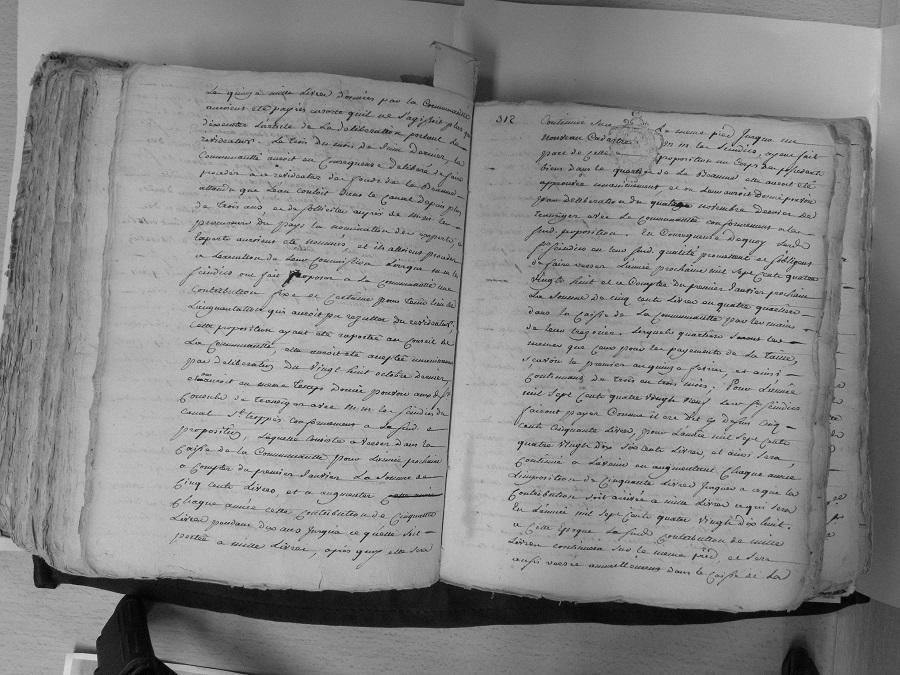 Le quinze mille Livres données par la Communauté
avoient eté payées encore quil ne S'agissoit plus que
dexecuter Larticle de La deliberation portant Le
reediteration. Le trois du mois de Juin Dernier, La
Communauté auroit en Consequence Delibéré de faire
proceder a ce reediteration de fonds de La Beaume
attendu que Leau Couloit Dans le Canal depuis plus
de trois ans, et de solliciter auprès de M.M. les
procureurs du Pays La nomination des experts,
Experts auroient été nommés, et ils alloient proceder
a Lexecution de Leur Commission Lorsque M.M. les
sindics ont fait proposer a La Communauté une
Contribution fixe et Certaine pour tenir lieu de
Laugmentation qui auroit pu rezulter du reediteration,
Cette proposition ayant été raportée au Conseil de
La Communauté, elle auroit eté acceptée unanimement
par deliberation du Vingt huit octobre dernier,
et auroit en meme temps Donné pouvoir aux Srs
Consuls de transiger avec M.M. les sindics du
Canal Conformement a La susd. e
proposition, Laquelle Consiste a verser dans la
Caisse de La Communauté pour Lannée prochaine
a Compter du premier Janvier La somme de
Cinq Cents Livres, et a augmenter
Chaque année cette Contribution de Cinquante
Livres pendant dix ans Jusqua ce quelle soit
portée a mille Livres, après quoy elle sera
312
Continuée Sur
Le meme pied Jusqua un
nouveau Cadastre
M.M. les Sindics, ayant fait
part de Cette
proposition au Corps des possedants
biens dans le quartier de La Beaume elle auroit été
aprouvée unanimement, et on Leur auroit Donné pouvoir
par deliberation du quatre novembre Dernier de
transiger avec La Communauté conformement a la
susd. proposition. En Consequence Dequoy Lesd.
Srs sindics en leur susd. qualité promettent et sobligent
de faire verser Lannée prochaine mil Sept Cents quatre
Vingts huit et a Compter du premier Janvier prochain
La Somme de Cinq cents Livres en quatre quartiers
dans la Caisse de La Communauté par les mains
de leur trezorier. Lesquels quartiers seront les
memes que ceux pour les payements de La taille,
scavoir le premier au quinze fevrier, et ainsi
Continuant de trois en trois mois. Pour Lannée
mil Sept Cents quatre vingt neuf Lesd. Srs sindics
fairont payer Comme il est dit cy dessus Cinq
Cents Cinquante Livres, pour Lannée mil Sept Cents
quatre vingt dix Six Cents Livres, et ainsi sera
Continué a Lavenir en augmentant Chaque année
Limposition de Cinquante Livres Jusques a ceque la
Contribution soit arrivée a mille Livres ce qui sera
En Lannée mil Sept Cents quatre Vingts dix huit.
a Cette epoque La susd. Contribution de mille
Livres continuera sur le meme pied, et sera
aussi versée annuellement dans la Caisse de lad.